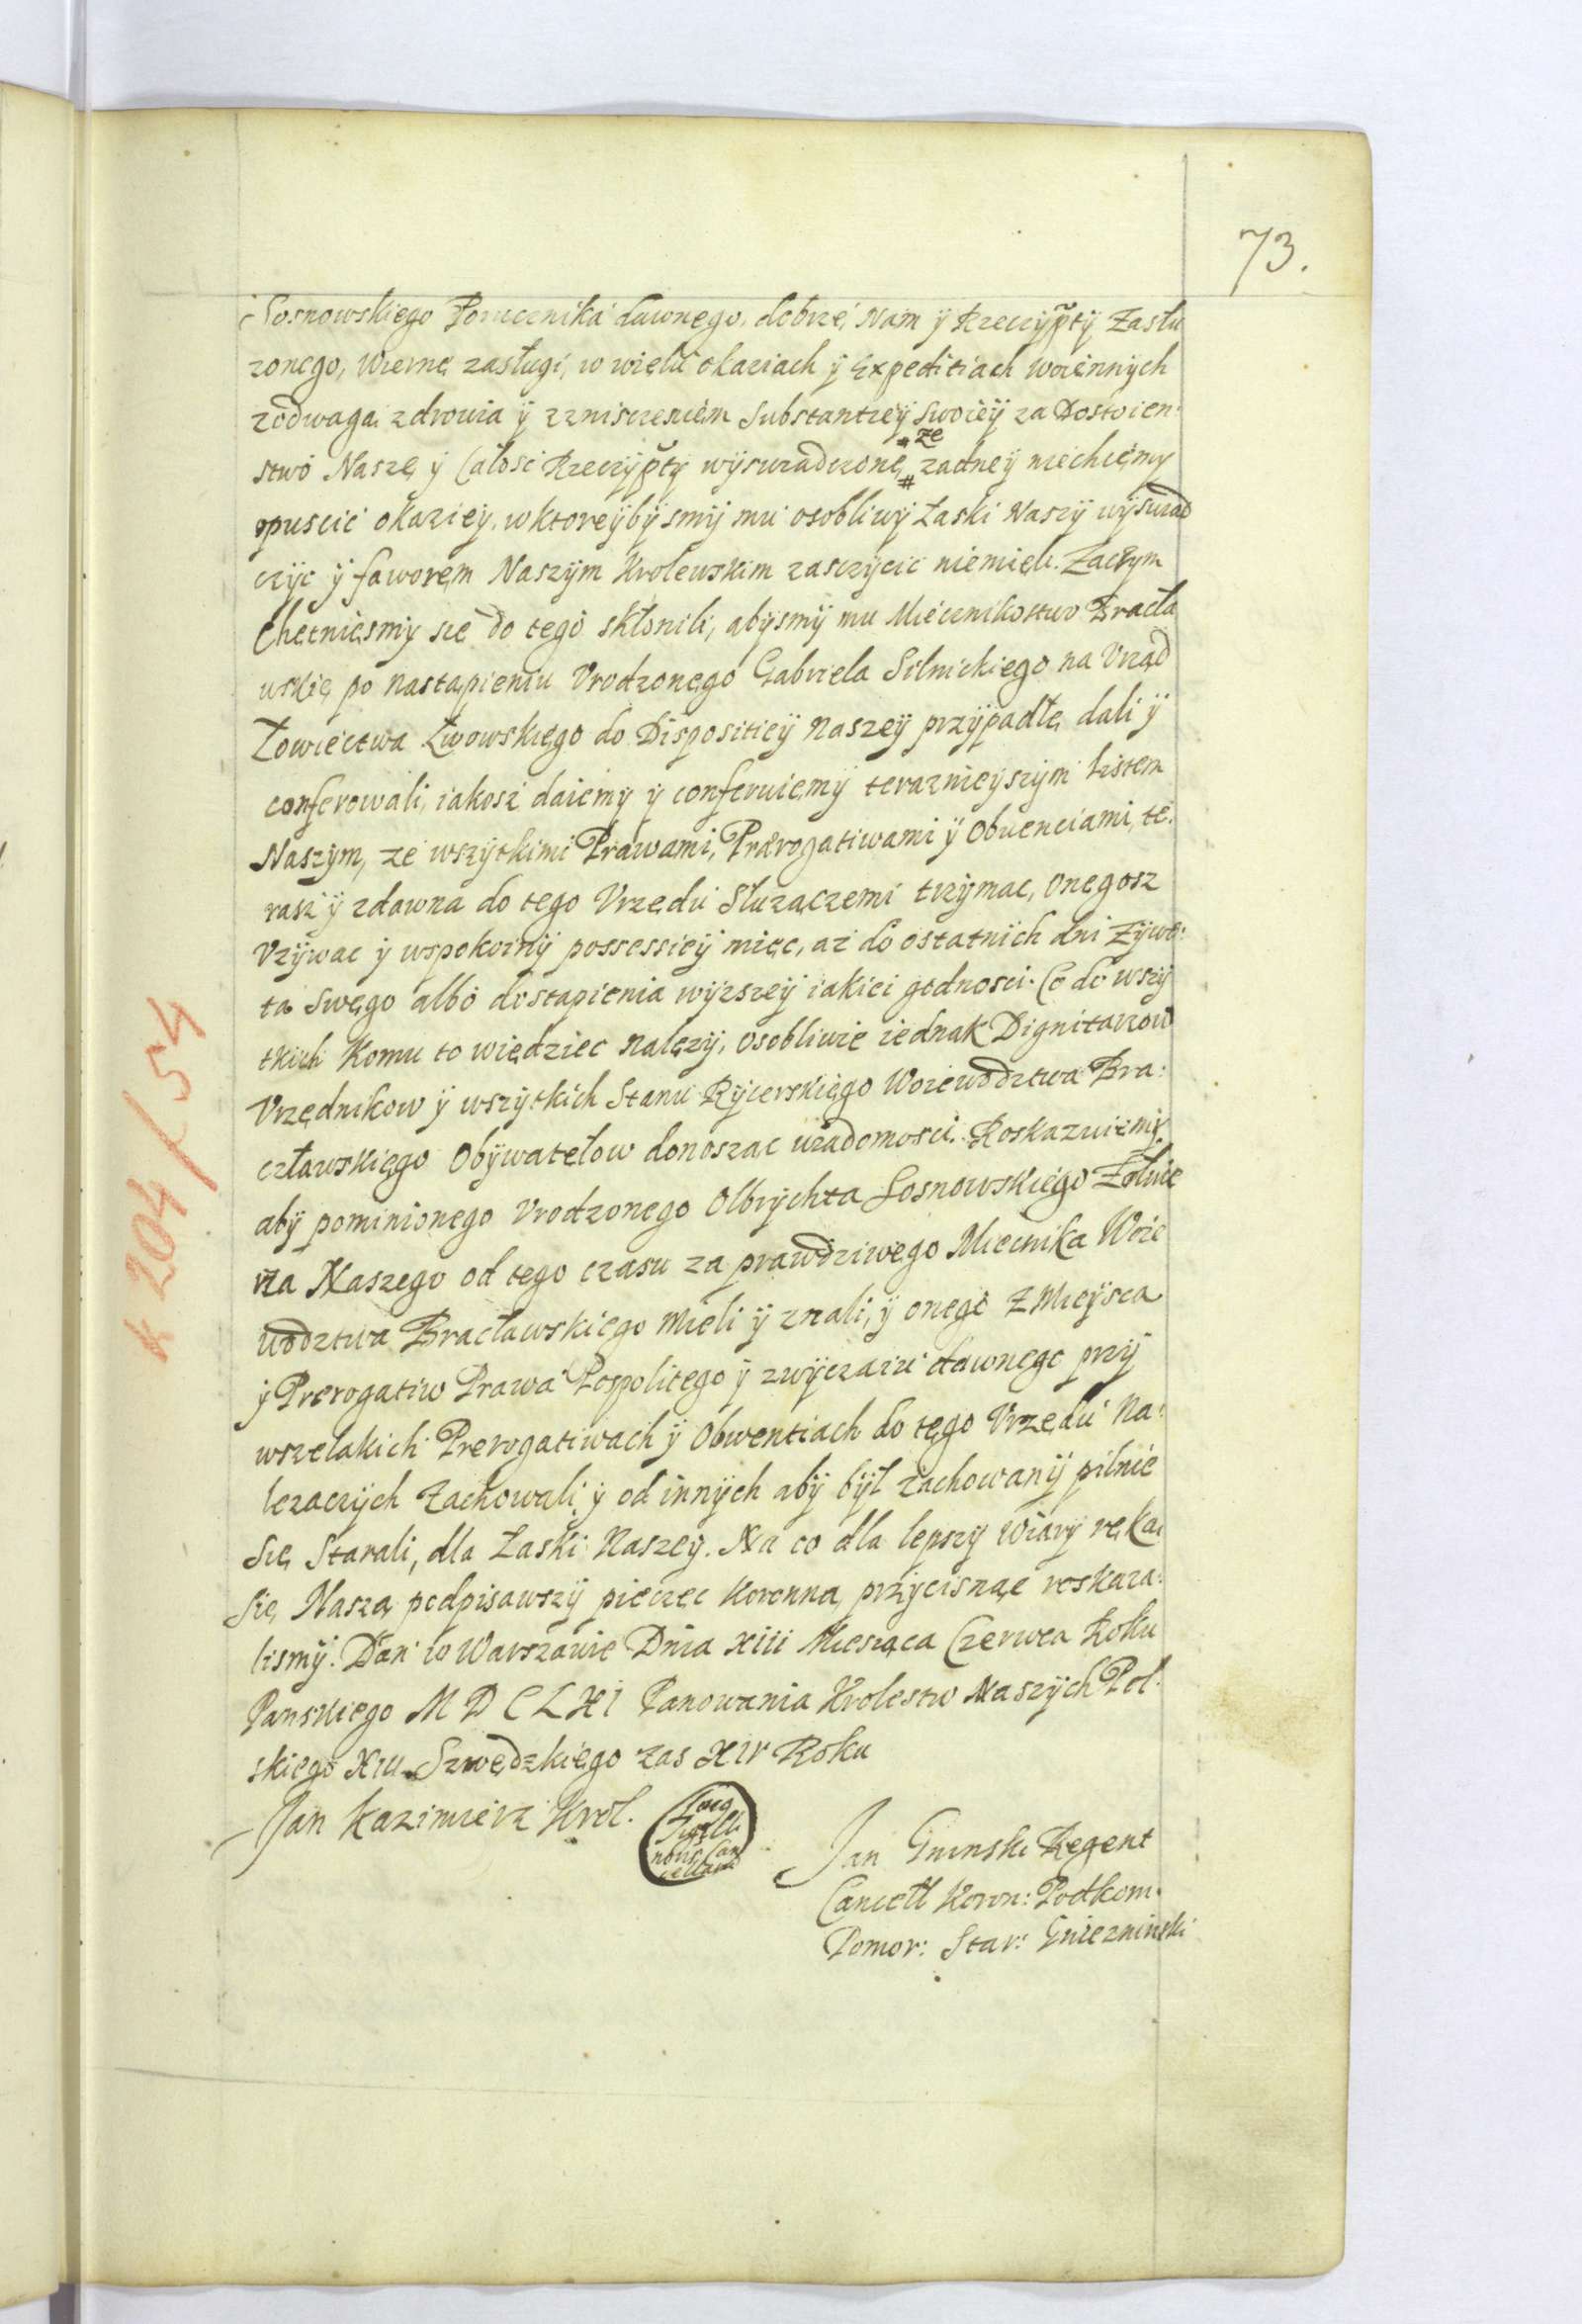 73.
Sosnowskiego Porucznika dawnego, dobrze Nam ÿ Rzeczÿpt̃ÿ Zasłu
zonego, wierne zasługi, w wielu okaziach ÿ Expeditiach woiennÿch
zodwagą zdrowia ÿ zzniszczeniem Substantieÿ Swoieÿ za Dostoien:
stwo Nasze ÿ Całosc Rzeczÿpt̃ÿ wÿswiadczone, # ze zadneÿ niechcemy
opuscic okazieÿ, wktoreÿbÿsmÿ mu osobliwÿ Łaski Naszÿ wÿswiad
czÿc ÿ faworem Naszÿm Krolewskim zasczÿcic niemieli. Zaczÿm
Chętniesmÿ się do tego skłonili, abÿsmÿ mu Miecznikostwo Bracła
wskie po nastąpieniu Vrodzonego Gabriela Silnickiego na Vrząd
Łowiectwa Lwowskiego do Dispositieÿ naszeÿ przÿpadłe dali ÿ
conferowali, iakosz daiemÿ ÿ conferuiemÿ teraznieÿszÿm listem
Naszÿm, ze wszÿtkimi Prawami, Prærogatiwami ÿ Obuenciami, te:
rasz ÿ zdawna do tego Vrzędu Słuzączemi trzÿmac, onegosz
Vzÿwac ÿ wspokoinÿ possessieÿ miec, az do ostatnich dni Zÿwo:
ta Swego albo dostapienia wÿzszeÿ iakiei godnosci. Co do wszÿ
tkich Komu to wiedziec nalezÿ, osobliwie iednak Dignitarzow
Vrzędnikow ÿ wszÿtkich Stanu Rÿcerskiego Woiewodztwa Bra:
cławskiego Obÿwatelow donosząc wiadomosci. Roskazuiemÿ
abÿ pomienionego Vrodzonego Olbrÿchta Sosnowskiego Zołnie
rza Naszego od tego czasu za prawdziwego Miecznika Woie
wodztwa Bracławskiego mieli ÿ znali, ÿ onego Z Mieÿsca
ÿ Prerogatiw Prawa Pospolitego ÿ zwÿczaiu dawnego przÿ
wszelakich Prerogatiwach ÿ Obwentiach do tego Vrzędu Na:
lezaczÿch Zachowali ÿ od innÿch abÿ bÿł zachowanÿ pilnie
Się Starali, dla Łaski Naszeÿ. Na co dla lepszÿ Wiarÿ ręką
Się Naszą podpisawszÿ pieczęc Koronną przÿcisnąc roskaza:
lismÿ. Dan w Warszawie Dnia XIII Miesiąca Czerwca Roku
Panskiego M D C L X I Panowania Krolestw Naszÿch Pol:
skiego XIII Szwedzkiego zas XIV Roku
Jan Kazimierz Krol.
Locus
Sigilli
Can
cellariæ
Jan Gninski Regent
Cancell Koron: Podkom:
Pomor: Star: Gniezninski
k 204/54